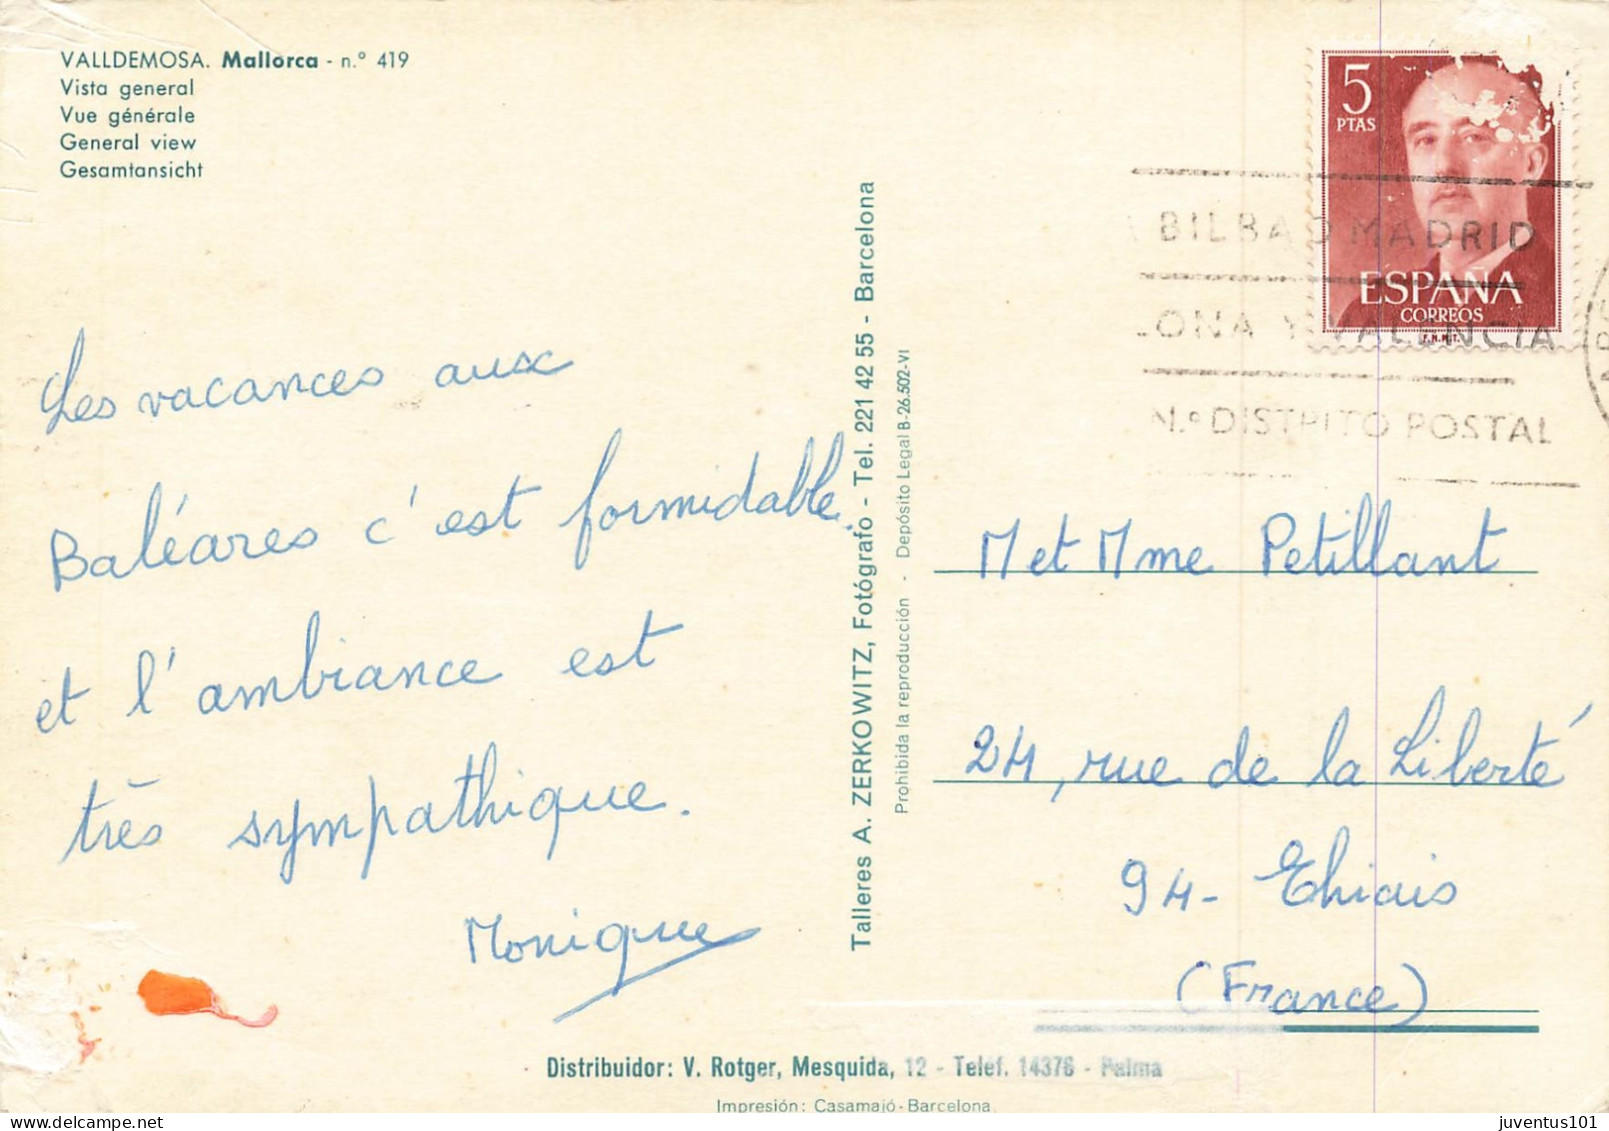 VALLDEMOSA. Mallorca - n.º 419
Vista general
Vue générale
General view
Gesamtansicht
5
PTAS
ESPAÑA
CORREOS
F.N.M.T.
BILBAO MADRID
ONA Y VALENCIA
N.º DISTRITO POSTAL
Les vacances aux
Baléares c'est formidable.
et l'ambiance est
très sympathique.
Monique
Talleres A. ZERKOWITZ, Fotógrafo - Tel. 221 42 55 - Barcelona
Prohibida la reproducción - Depósito Legal B-26.502-VI
M et Mme Petillant
24, rue de la Liberté
94 - Thiais
(France)
Distribuidor: V. Rotger, Mesquida, 12 - Telef. 14376 - Palma
Impresión: Casamajó - Barcelona
juventus101